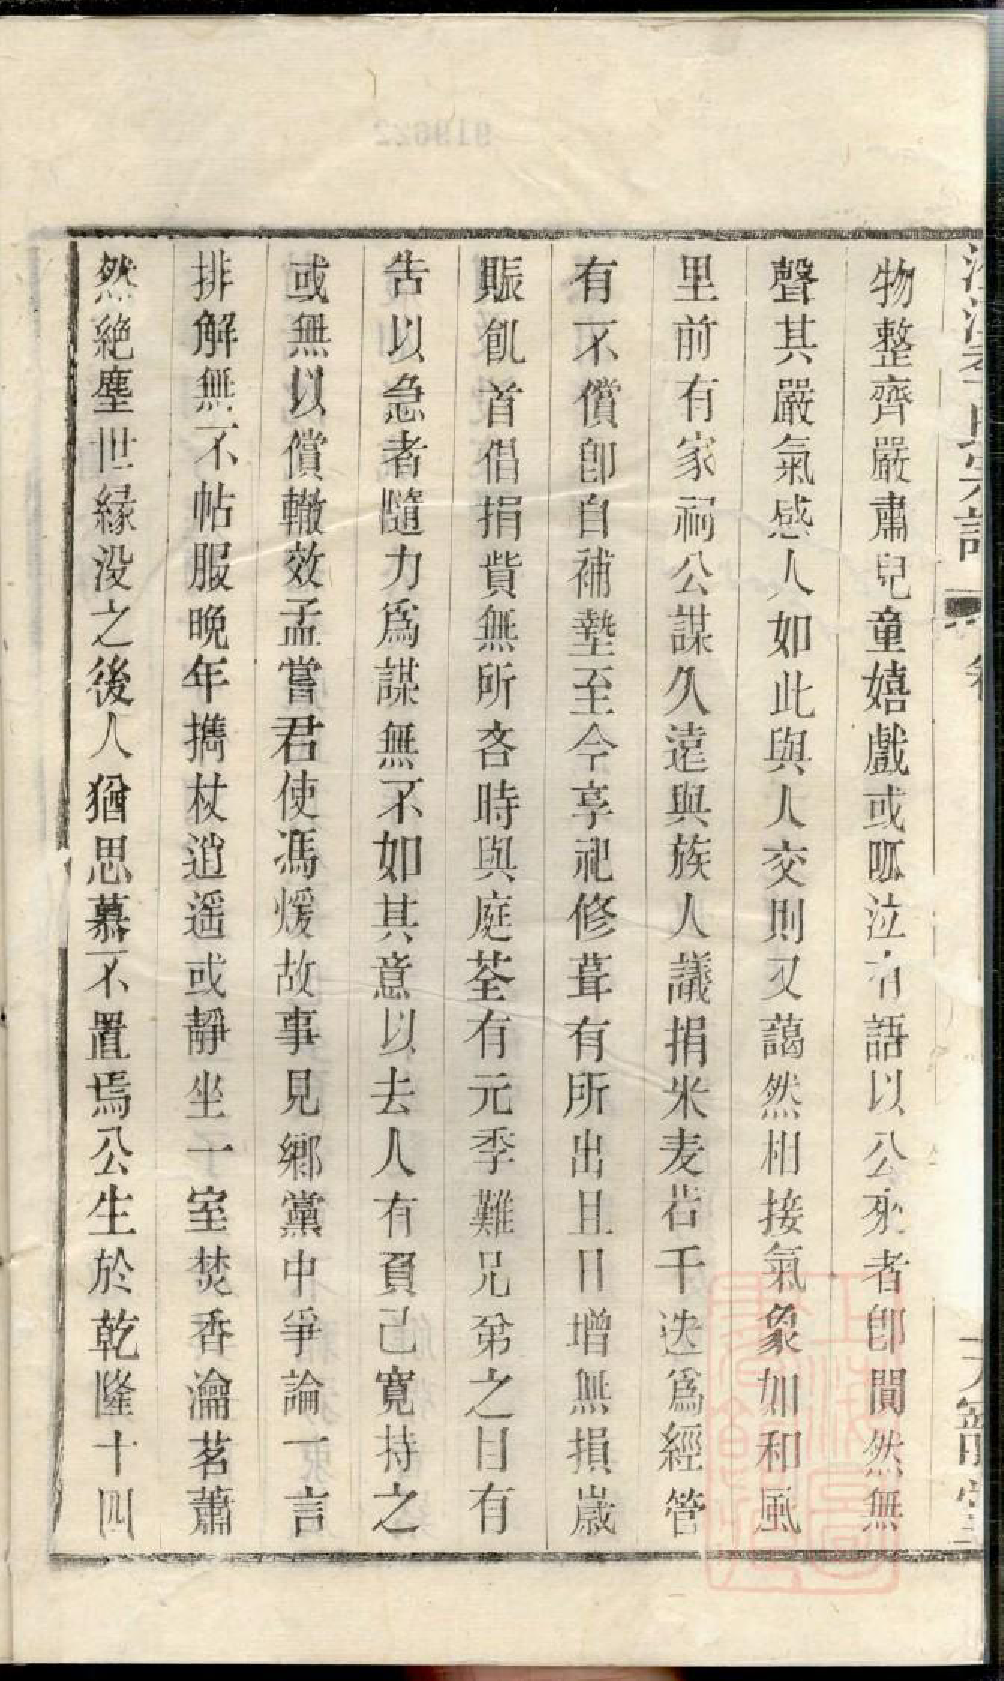 物整齊嚴肅兒童嬉戲或呱泣有語以公來者卽闃然無
聲其嚴氣感人如此與人交則又藹然相接氣象如和風
里前有家祠公謀久遠與族人議捐米麦若干迭爲經管
有不償卽自補墊至今享祀修葺有所出且日增無損歲
賑飢首倡捐貲無所吝時與庭荃有元季難兄弟之目有
告以急者隨力爲謀無不如其意以去人有負己寬持之
或無以償轍效孟嘗君使馮煖故事見鄉黨中爭論一言
排解無不帖服晚年攜杖逍遥或靜坐一室焚香瀹茗蕭
然絶塵世緣没之後人猶思慕不置焉公生於乾隆十四